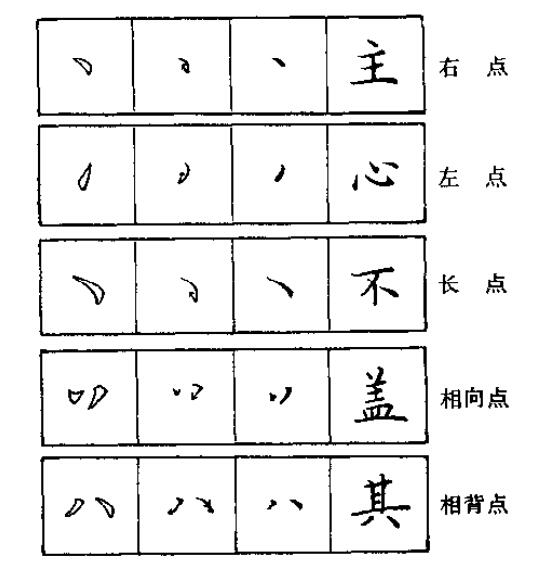 主 右点
心 左点
不 长点
盖 相向点
其 相背点